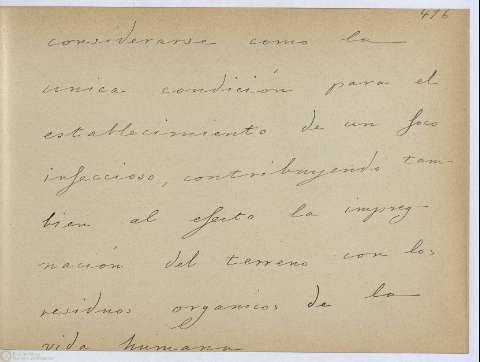 476
considerarse como la
unica condición para el
establecimiento de un foco
infeccioso, contribuyendo tam-
bien al efecto la impreg-
nación del terreno con los
residuos organicos de la
vida humana